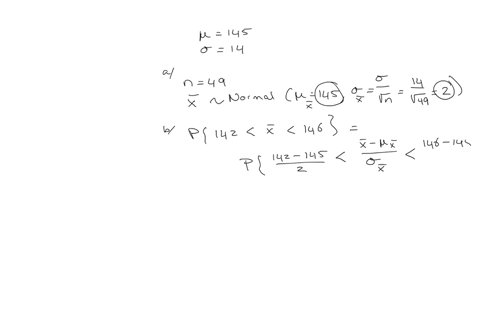 μ = 145
σ = 14
a/
n = 49
x̄ ~ Normal (μ_x̄ = 145, σ_x̄ = σ/√n = 14/√49 = 2)
b/ P{142 < x̄ < 146} =
P{ (142 - 145)/2 < (x̄ - μ_x̄)/σ_x̄ < 146 - 14